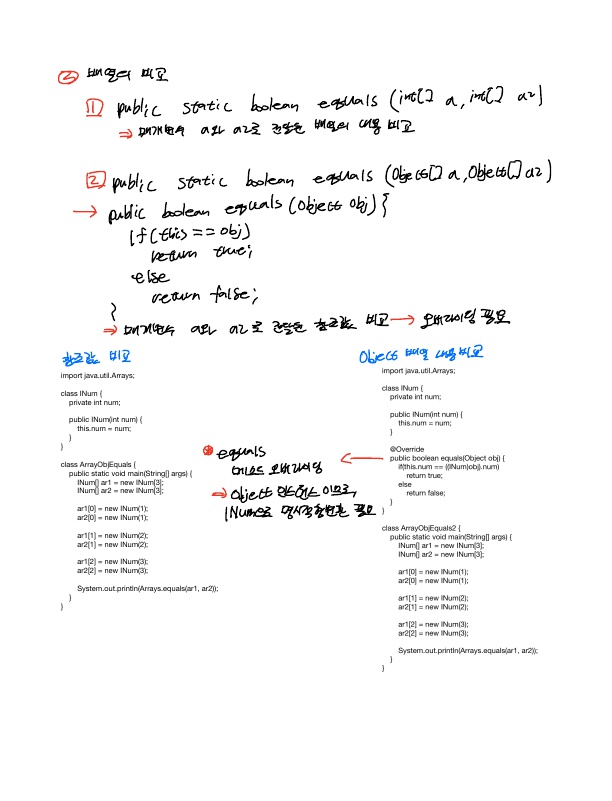 ③ 배열의 비교
1 public static boolean equals (int[] a, int[] a2)
⇒ 매개변수 a와 a2로 전달된 배열의 내용 비교
2 public static boolean equals (Object[] a, Object[] a2)
→ public boolean equals (Object obj) {
if (this == obj)
return true;
else
return false;
}
⇒ 매개변수 a와 a2로 전달된 참조값 비교 → 오버라이딩 필요
참조값 비교
import java.util.Arrays;
class INum {
private int num;
public INum(int num) {
this.num = num;
}
}
class ArrayObjEquals {
public static void main(String[] args) {
INum[] ar1 = new INum[3];
INum[] ar2 = new INum[3];
ar1[0] = new INum(1);
ar2[0] = new INum(1);
ar1[1] = new INum(2);
ar2[1] = new INum(2);
ar1[2] = new INum(3);
ar2[2] = new INum(3);
System.out.println(Arrays.equals(ar1, ar2));
}
}
equals
메소드 오버라이딩
⇒ Object 인스턴스 이므로,
INum으로 명시적형변환 필요
Object 배열 내용비교
import java.util.Arrays;
class INum {
private int num;
public INum(int num) {
this.num = num;
}
@Override
public boolean equals(Object obj) {
if(this.num == ((INum)obj).num)
return true;
else
return false;
}
}
class ArrayObjEquals2 {
public static void main(String[] args) {
INum[] ar1 = new INum[3];
INum[] ar2 = new INum[3];
ar1[0] = new INum(1);
ar2[0] = new INum(1);
ar1[1] = new INum(2);
ar2[1] = new INum(2);
ar1[2] = new INum(3);
ar2[2] = new INum(3);
System.out.println(Arrays.equals(ar1, ar2));
}
}